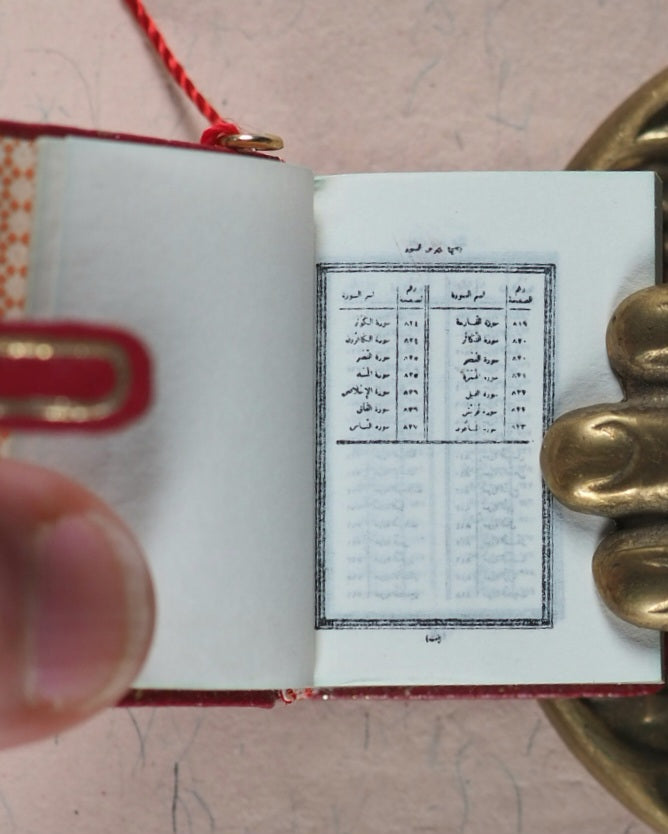 رقم الصفحة اسم السورة رقم الصفحة اسم السورة
٨١٩ سورة القارعة ٨٢٤ سورة الكوثر
٨٢٠ سورة التكاثر ٨٢٤ سورة الكافرون
٨٢٠ سورة العصر ٨٢٥ سورة النصر
٨٢١ سورة الهمزة ٨٢٥ سورة
سورة الفيل ٨٢٦ سورة الإخلاص
سورة قريش ٨٢٦ سورة الفلق
٨٢٣ سورة الماعون ٨٢٧ سورة الناس